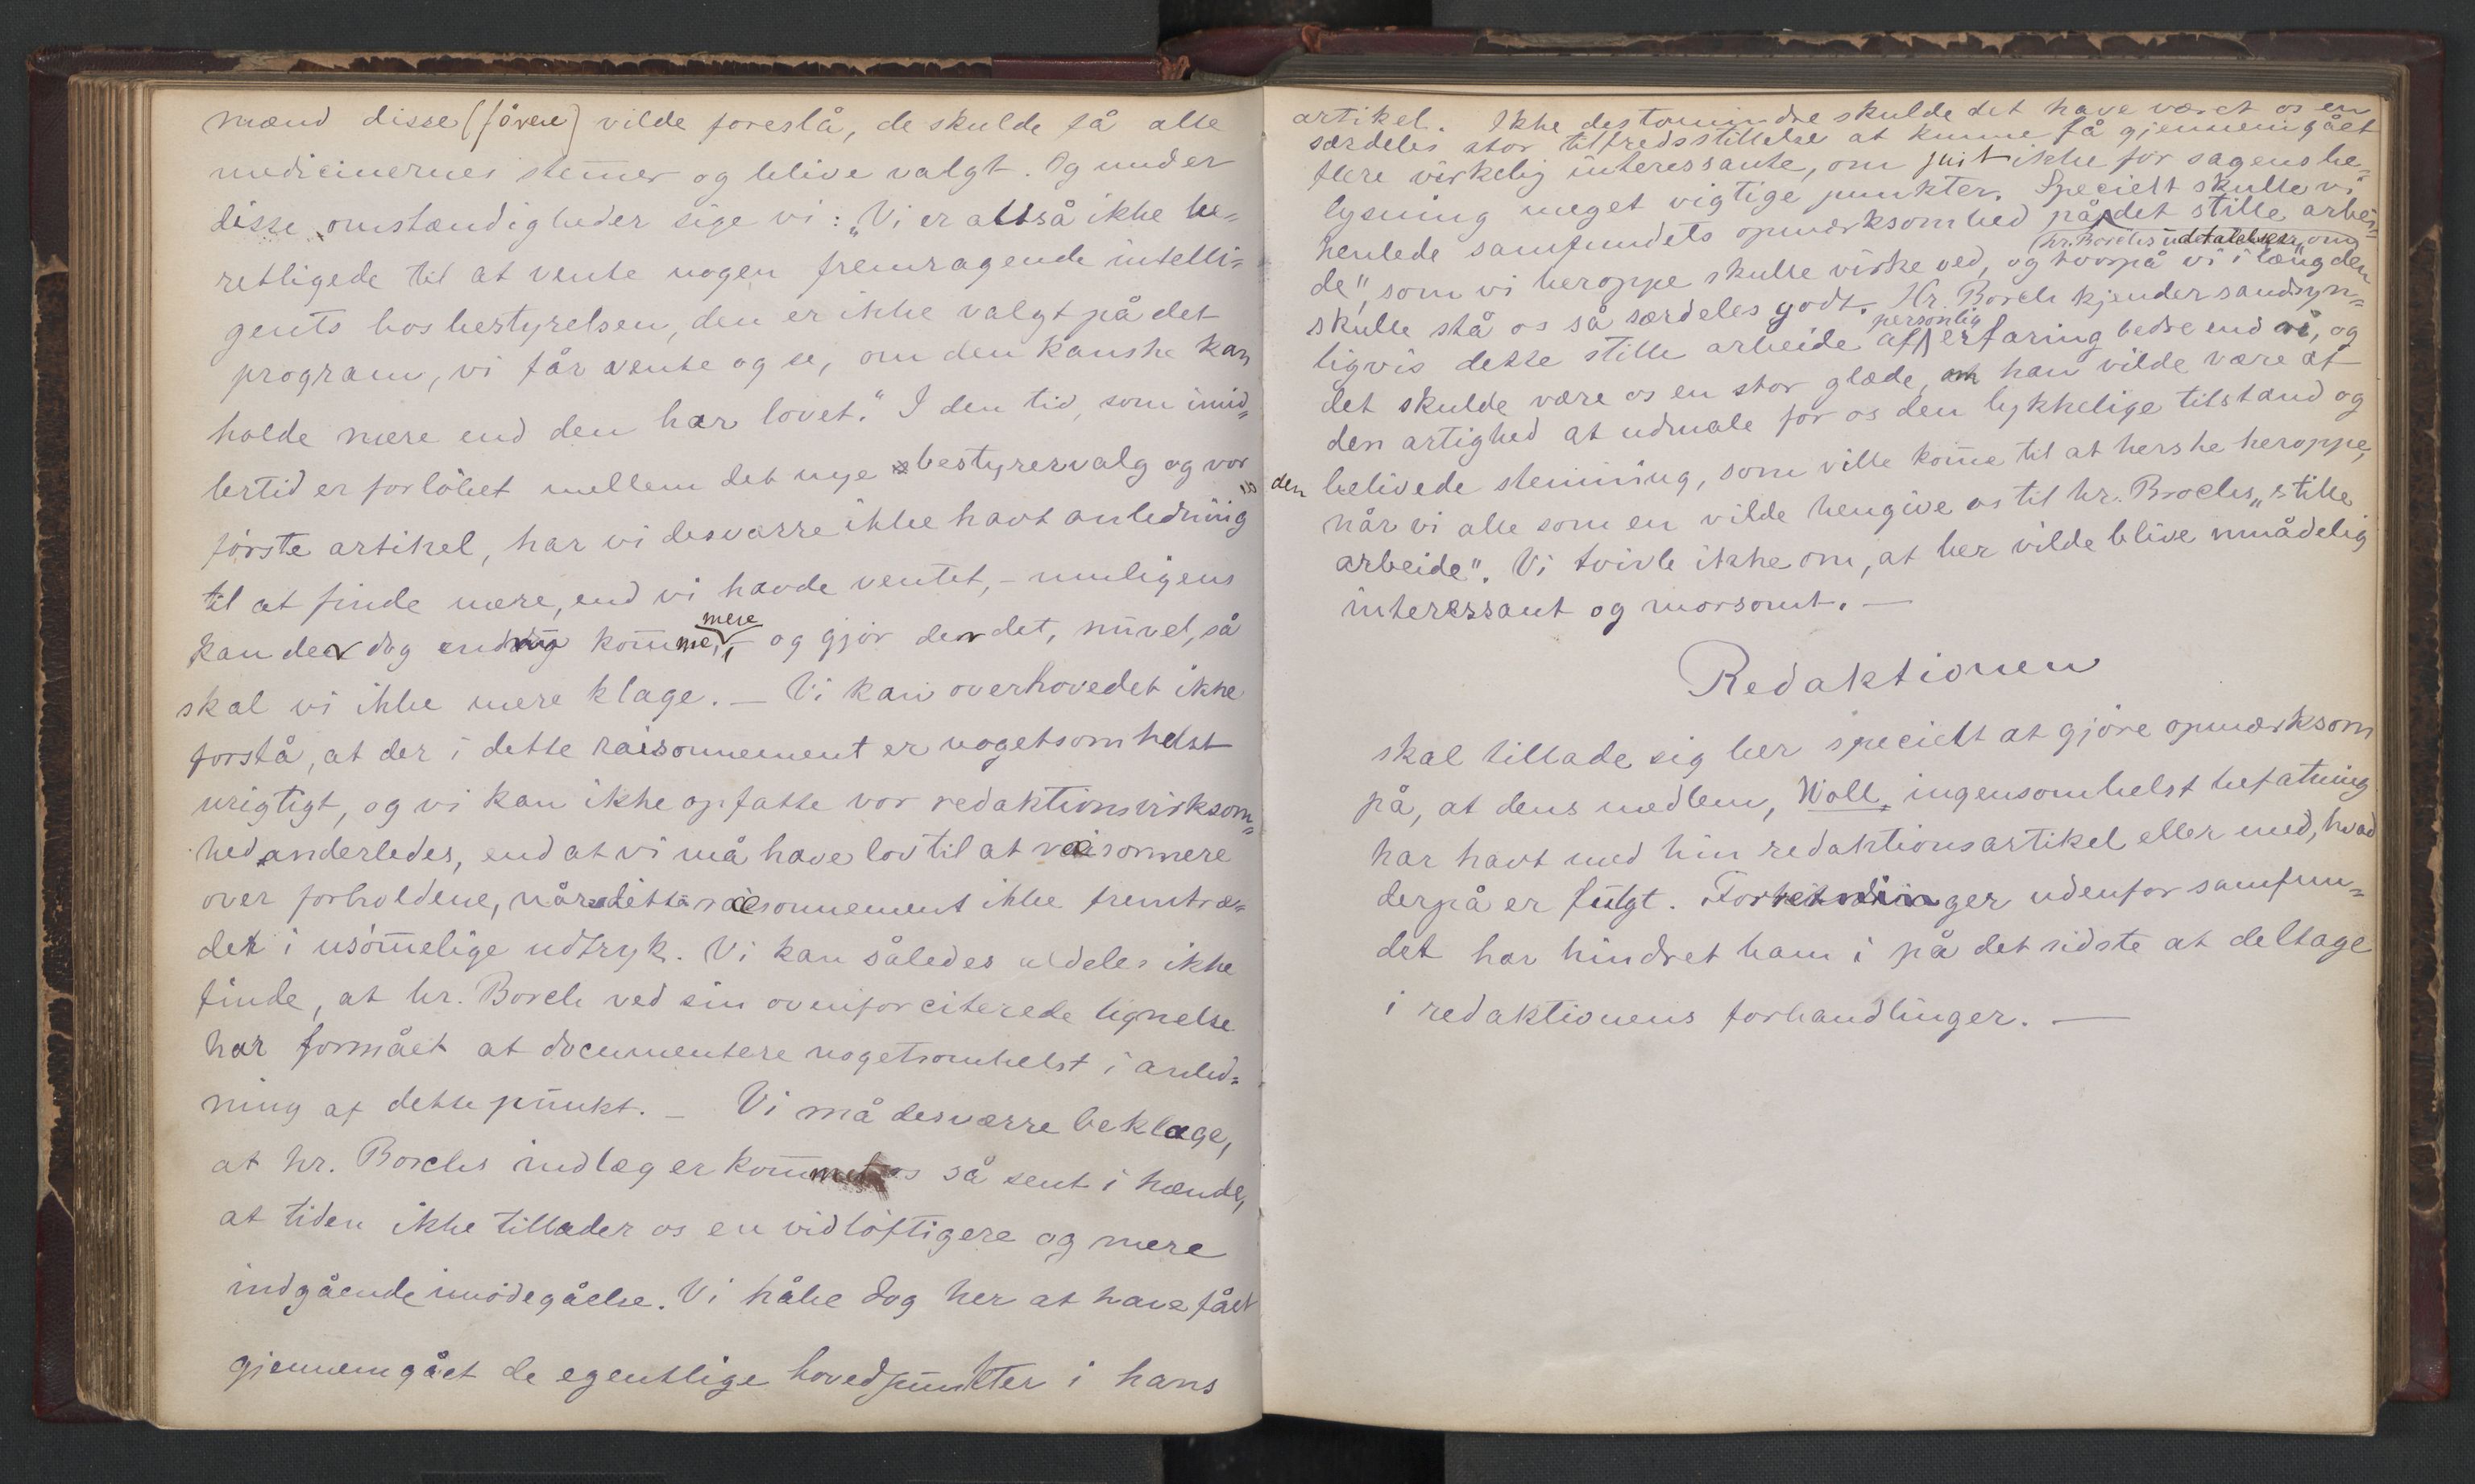 mænd disse (fåreee) vilde foreslå, de skulde få alle
medicinernes stem̄er og blive valgt. Og under
disse omstændigheder sige vi: „Vi er altså ikke be=
rettigede til at vente nogen fremragende intelli=
gents hos bestyrelsen, den er ikke valgt på det
program, vi får vente og se, om den kanske kan
holde mere end den har lovet.“ I den tid, som imid=
lertid er forløbet mellem det nye bestyrervalg og vor
første artikel, har vi desværre ikke havt anledning
til at finde mere, end vi havde ventet, – muligens
kan der dog endnu kom̄me mere, – og gjør den det, nuvel, så
skal vi ikke mere klage. – Vi kan overhovedet ikke
forstå, at der i dette raisonnement er nogetsomhelst
urigtigt, og vi kan ikke opfatte vor redaktionsvirksom=
hed anderledes, end at vi må have lov til at raisonnere
over forholdene, når dette raisonnement ikke fremtræ=
der i usøm̄elige udtryk. Vi kan således aldeles ikke
finde, at hr. Borch ved sin ovenfor citerede lignelse
har formået at documentere nogetsomhelst i anled=
ning af dette punkt. – Vi må desværre beklage,
at hr. Borchs indlæg er kom̄met os så sent i hænde,
at tiden ikke tillader os en vidløftigere og mere
indgående imødegåelse. Vi håbe dog her at have fået
gjennemgået de egentlige hovedpunkter i hans
artikel. Ikke destomindre skulde det have været os en
særdeles stor tilfredsstillelse at kunne få gjennemgået
flere virkelig interessante, om just ikke for sagens be=
lysning meget vigtige punkter. Specielt skulle vi
henlede samfundets opmærksomhed på hr. Borchs udtalelser om „det stille arbei=
de“, som vi heroppe skulle virke ved, og hvorpå vi i længden
skulle stå os så særdeles godt. Hr. Borch kjender sandsyn=
ligvis dette stille arbeide af personlig erfaring bedre end vi, og
det skulde være os en stor glæde, om han vilde være af
den artighed at udmale for os den lykkelige tilstand og
den belivede stemning, som ville kom̄e til at herske heroppe,
når vi alle som en vilde hengive os til hr. Borchs „stille
arbeide“. Vi tvivle ikke om, at her vilde blive umådelig
interessant og morsomt. –
Redaktionen
skal tillade sig her specielt at gjøre opmærksom
på, at dens medlem, Woll, ingensomhelst befatning
har havt med hin redaktionsartikel eller med, hvad
derpå er fulgt. Forretninger udenfor samfun=
det har hindret ham i på det sidste at deltage
i redaktionens forhandlinger. –